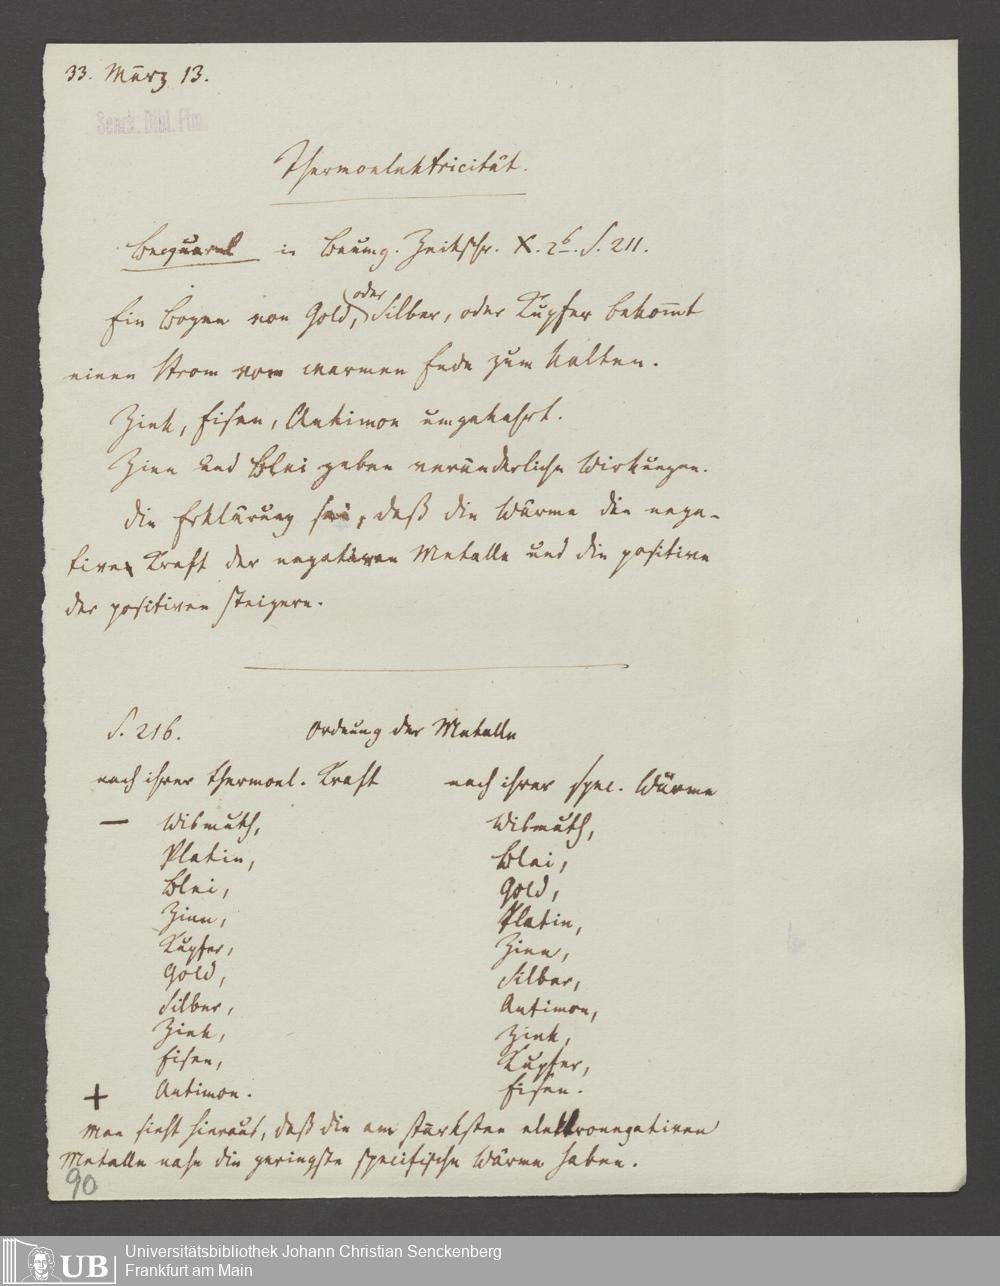 33. März 13.
Senck. Bibl. Ffm.
Thermoelektricität.
Becquerel in Baumg. Zeitschr. X. 2b. S. 211.
Ein Bogen von Gold, oder Silber, oder Kupfer bekom̅t
einen Strom vom warmen Ende zum kalten.
Zink, Eisen, Antimon umgekehrt.
Zinn und Blei geben veränderliche Wirkungen.
Die Erklärung sei, daß die Wärme die nega-
tive Kraft der negativen Metalle und die positive
der positiven steigern.
S. 216. Ordnung der Metalle
nach ihrer thermoel. Kraft nach ihrer spec. Wärme
— Wismuth, Wismuth,
Platin, Blei,
Blei, Gold,
Zinn, Platin,
Kupfer, Zinn,
Gold, Silber,
Silber, Antimon,
Zink, Zink,
Eisen, Kupfer,
+ Antimon. Eisen.
Man sieht hieraus, daß die am stärksten elektronegativen
Metalle nahe die geringste specifische Wärme haben.
90
UB Universitätsbibliothek Johann Christian Senckenberg
Frankfurt am Main